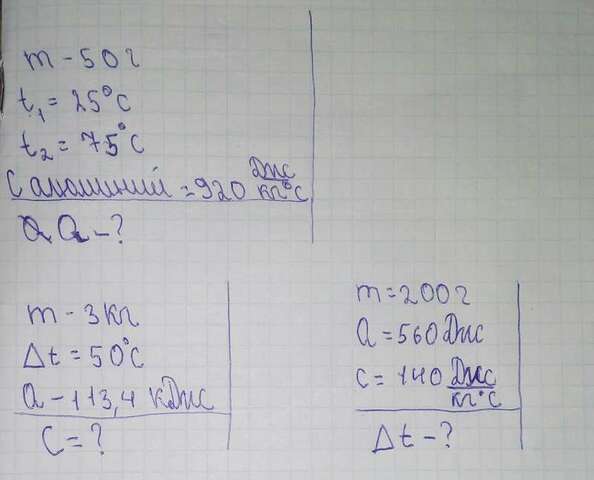 m - 50г
t₁ = 25°C
t₂ = 75°C
C алюминий = 920 Дж/кг°C
Q Q - ?
m - 3кг
Δt = 50°C
Q - 113,4 кДж
C = ?
m = 200г
Q = 560 Дж
c = 140 Дж/кг°C
Δt - ?